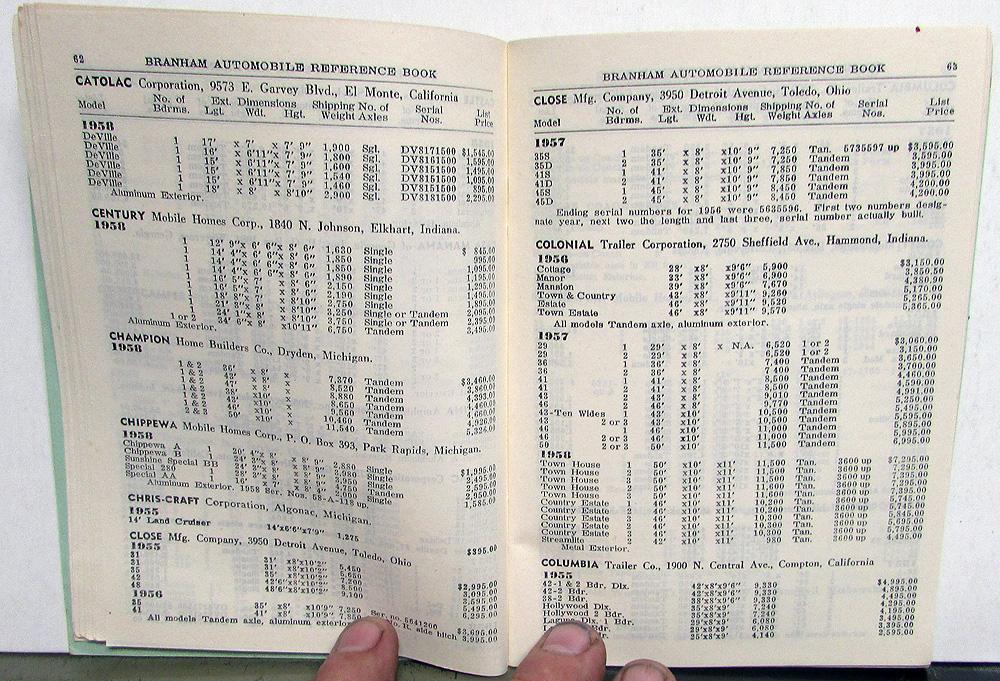 62
BRANHAM AUTOMOBILE REFERENCE BOOK
CATOLAC Corporation, 9573 E. Garvey Blvd., El Monte, California
No. of Ext. Dimensions Shipping No. of Serial List
Model Bdrms. Lgt. Wdt. Hgt. Weight Axles Nos. Price
1958
DeVille 1 17' x 7' x 7' 9" 1,900 Sgl. DV8171500 $1,545.00
DeVille 1 16' x 6'11"x 7' 9" 1,800 Sgl. DV8161500 1,595.00
DeVille 1 15' x 6'11"x 7' 9" 1,600 Sgl. DV8151500 1,495.00
DeVille 1 15' x 6'11"x 7' 9" 1,540 Sgl. DV8151500 1,095.00
DeVille 1 15' x 6'11"x 7' 9" 1,460 Sgl. DV8151500 895.00
DeVille 1 18' x 8' x 8'10" 2,900 Sgl. DV8181500 2,295.00
Aluminum Exterior.
CENTURY Mobile Homes Corp., 1840 N. Johnson, Elkhart, Indiana.
1958
1 12' 9"x 6' 6"x 8' 6" 1,630 Single
1 14' 4"x 6' 6"x 8' 6" 1,850 Single 995.00
1 14' 4"x 6' 6"x 8' 6" 1,850 Single 1,095.00
1 14' 4"x 6' 6"x 8' 6" 1,890 Single 1,195.00
1 16' 5"x 7' x 8' 6" 2,150 Single 1,295.00
1 16' 5"x 7' x 8' 6" 2,190 Single 1,495.00
1 18' 8"x 7' x 8'10" 2,750 Single 1,895.00
1 21' 2"x 8' x 8'10" 3,250 Single or Tandem 2,095.00
1 24' 1"x 8' x 8'10" 3,750 Single or Tandem 2,395.00
1 or 2 34' 6"x 8' x10'11" 6,750 Tandem 3,495.00
Aluminum Exterior.
CHAMPION Home Builders Co., Dryden, Michigan.
1958
1 & 2 36' x 8' x 7,370 Tandem $3,460.00
1 & 2 42' x 8' x 8,520 Tandem 3,860.00
1 & 2 47' x 8' x 8,880 Tandem 4,393.00
1 & 2 38' x10' x 8,650 Tandem 4,460.00
1 & 2 42' x10' x 9,560 Tandem 4,660.00
1 & 2 46' x10' x 10,460 Tandem 4,926.00
2 & 3 50' x10' x 11,540 Tandem 5,326.00
CHIPPEWA Mobile Homes Corp., P. O. Box 393, Park Rapids, Michigan.
1958
Chippewa A 1 20' 4"x 8' 2,880 Single $1,995.00
Chippewa B 1 24' 3"x 8' x 8' 9" 3,080 Single 2,495.00
Sunshine Special BB 1 24' 3"x 8' x 8' 9" 3,980 Single 2,595.00
Special 280 28' 3"x 8' x 8' 9" 4,750 Tandem 2,950.00
Special AA 16' x 7' x 8' 4" 2,000 Single 1,585.00
Aluminum Exterior. 1958 Ser. Nos. 58-A-118 up.
CHRIS-CRAFT Corporation, Algonac, Michigan.
1955
14' Land Cruiser 14'x6'6"x7'9" 1,275 $395.00
CLOSE Mfg. Company, 3950 Detroit Avenue, Toledo, Ohio
1955
31 31' x8'x10'2" 5,450 $2,995.00
31 31' x8'x10'2" 5,550 3,095.00
35 35' x8'x10'2" 2,595.00
42 42'6"x8'x10'2" 5,495.00
48 9,100 6,295.00
1956
35 35' x8' x10'9" 7,250 $3,695.00
41 41' x8' x10'9" 7,850 3,995.00
All models Tandem axle, aluminum exterior. Ser. no. 5641206 R. side hitch
63
BRANHAM AUTOMOBILE REFERENCE BOOK
CLOSE Mfg. Company, 3950 Detroit Avenue, Toledo, Ohio
No. of Ext. Dimensions Shipping No. of Serial List
Model Bdrms. Lgt. Wdt. Hgt. Weight Axles Nos. Price
1957
35S 1 35' x 8' x10' 9" 7,250 Tan. 5735597 up $3,595.00
35D 2 35' x 8' x10' 9" 7,250 Tandem 3,595.00
41S 1 41' x 8' x10' 9" 7,850 Tandem 3,995.00
41D 2 41' x 8' x10' 9" 7,850 Tandem 3,995.00
45S 1 45' x 8' x10' 9" 8,450 Tandem 4,200.00
45D 2 45' x 8' x10' 9" 8,450 Tandem 4,200.00
Ending serial numbers for 1956 were 5635596. First two numbers desig-
nate year, next two the length and last three, serial number actually built.
COLONIAL Trailer Corporation, 2750 Sheffield Ave., Hammond, Indiana.
1956
Cottage 28' x8' x9'6" 5,900 $3,150.00
Manor 33' x8' x9'6" 6,900 3,850.50
Mansion 39' x8' x9'6" 7,670 4,380.90
Town & Country 46' x8' x9'11" 9,260 5,170.00
Estate 46' x8' x9'11" 9,520 5,265.00
Town Estate 46' x8' x9'11" 9,570 5,365.00
All models Tandem axle, aluminum exterior.
1957
29 1 29' x 8' x N.A. 6,520 1 or 2 $3,060.00
29 2 29' x 8' 6,520 1 or 2 3,150.00
36 1 36' x 8' 7,400 Tandem 3,650.00
36 2 36' x 8' 7,400 Tandem 3,700.00
41 1 41' x 8' 8,500 Tandem 4,460.00
41 2 41' x 8' 8,500 Tandem 4,590.00
43 2 43' x 8' 9,010 Tandem 4,991.00
46 2 46' x 8' 9,770 Tandem 5,250.00
43-Ten Wides 1 43' x10' 10,500 Tandem 5,495.00
43 2 or 3 43' x10' 10,500 Tandem 5,595.00
46 1 46' x10' 11,000 Tandem 5,895.00
46 2 or 3 46' x10' 11,000 Tandem 5,995.00
50 2 or 3 50' x10' 11,600 Tandem 6,995.00
1958
Town House 1 50' x10' x11' 11,500 Tan. 3600 up $7,295.00
Town House 2 50' x10' x11' 11,500 Tan. 3600 up 7,295.00
Town House 2 50' x10' x11' 11,500 Tan. 3600 up 7,395.00
Town House 3 50' x10' x11' 11,600 Tan. 3600 up 7,295.00
Town House 3 50' x10' x11' 11,600 Tan. 3600 up 7,395.00
Country Estate 1 46' x10' x11' 10,200 Tan. 3600 up 5,745.00
Country Estate 2 46' x10' x11' 10,200 Tan. 3600 up 5,745.00
Country Estate 2 46' x10' x11' 10,200 Tan. 3600 up 5,845.00
Country Estate 3 46' x10' x11' 10,300 Tan. 3600 up 5,695.00
Country Estate 3 46' x10' x11' 10,300 Tan. 3600 up 5,795.00
2 42' x10' x11' 980 Tan. 3600 up 4,495.00
Metal Exterior.
COLUMBIA Trailer Co., 1900 N. Central Ave., Compton, California
1955
42-1 & 2 Bdr. Dlx. 42'x8'x9'6" 9,330 $4,995.00
42-2 Bdr. 42'x8'x9'6" 9,330 4,895.00
38-2 Bdr. 38'x8'x9'6" 9,330 4,495.00
Hollywood Dlx. 35'x8'x9' 7,240 4,295.00
Hollywood 2 Bdr. 35'x8'x9' 7,240 4,195.00
Dlx. 1 Bdr. 29'x8'x9' 6,080 3,495.00
Bdr. 29'x8'x9' 6,080 3,395.00
25'x8'x9' 4,140 2,595.00